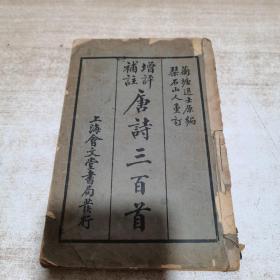 蘅塘退士原編
琹石山人重訂
增評
補註
唐詩三百首
上海會文堂書局發行